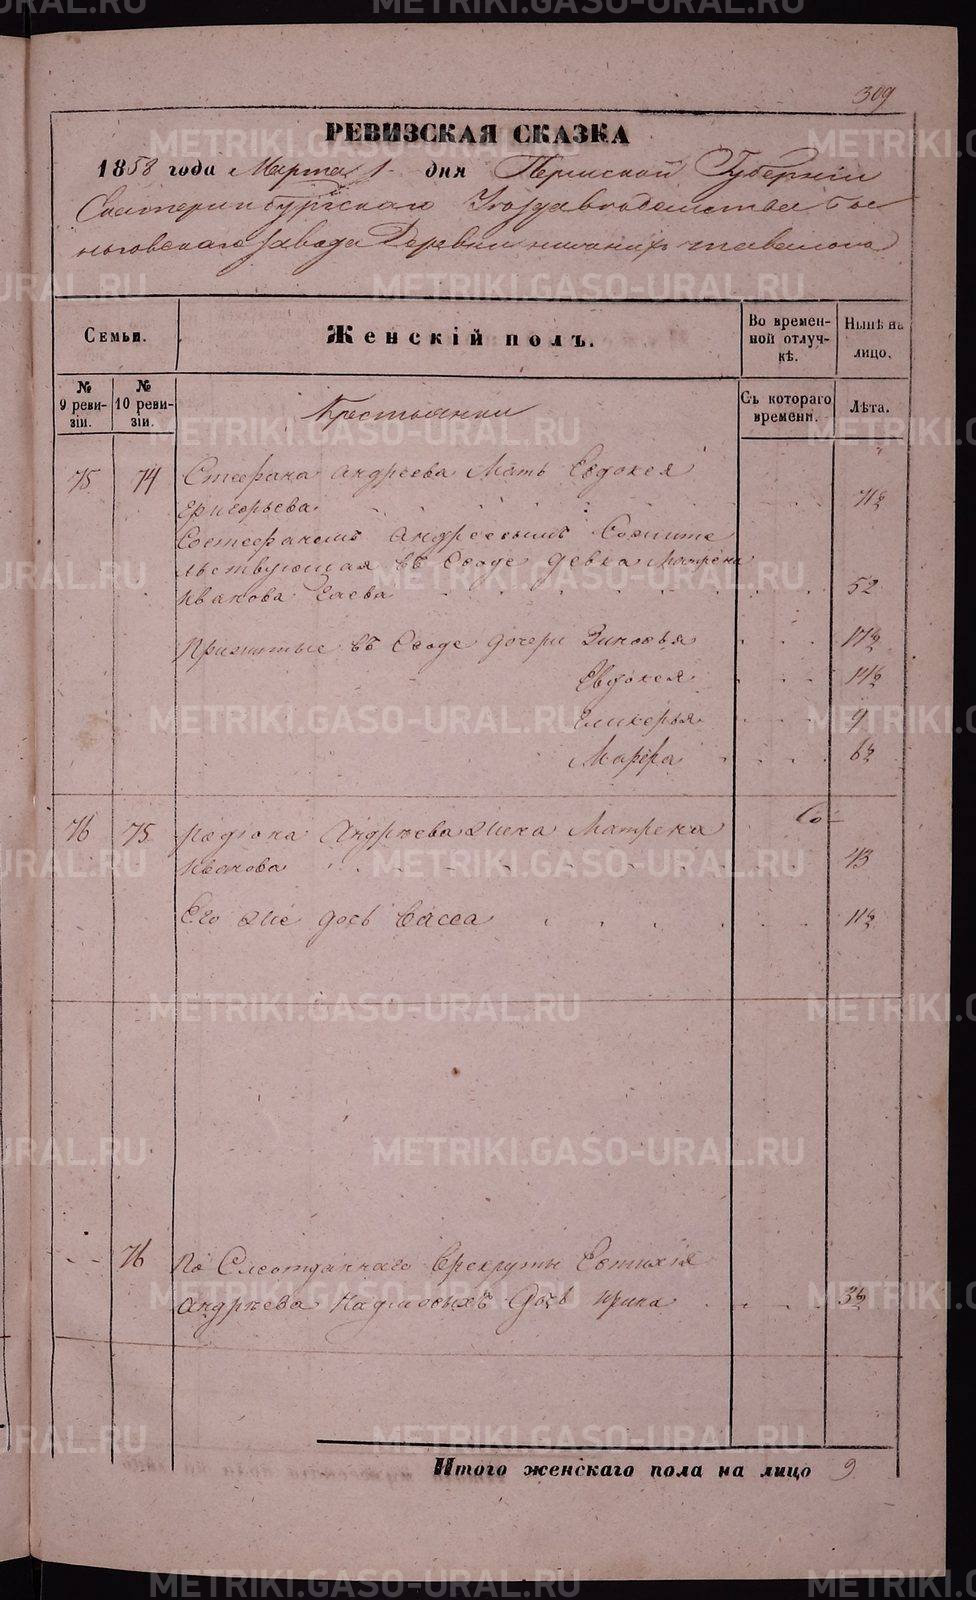 309
РЕВИЗСКАЯ СКАЗКА
1858 года Марта 1 дня Пермской Губернии
Екатеринбургскаго Уезда ведомства
завода Деревни
Семьи.
Женскій полъ.
Во времен-
ной отлуч-
кѣ.
Нынѣ на
лицо.
№
9 реви-
зіи.
№
10 реви-
зіи.
Съ котораго
времени.
Лѣта.
Крестьянки
75 74 Стефана Андреева Мать Евдокея
Григорьева 71½
Состефаномъ Андреевымъ Сожите
льствующая въ блоде девка Матрена
Иванова 52
Прижитые въ блоде дочери Зиновья 17½
Евдокея 14½
Гликерья 9
Марфа 6½
76 75 Радіона Андреева жена Матрена
Иванова 43
Его же дочь Васса 11½
76 Поснеотданнаго врекруты Евтихія
Андреева дочь Ирина 3½
Итого женскаго пола на лицо 9
METRIKI.GASO-URAL.RU